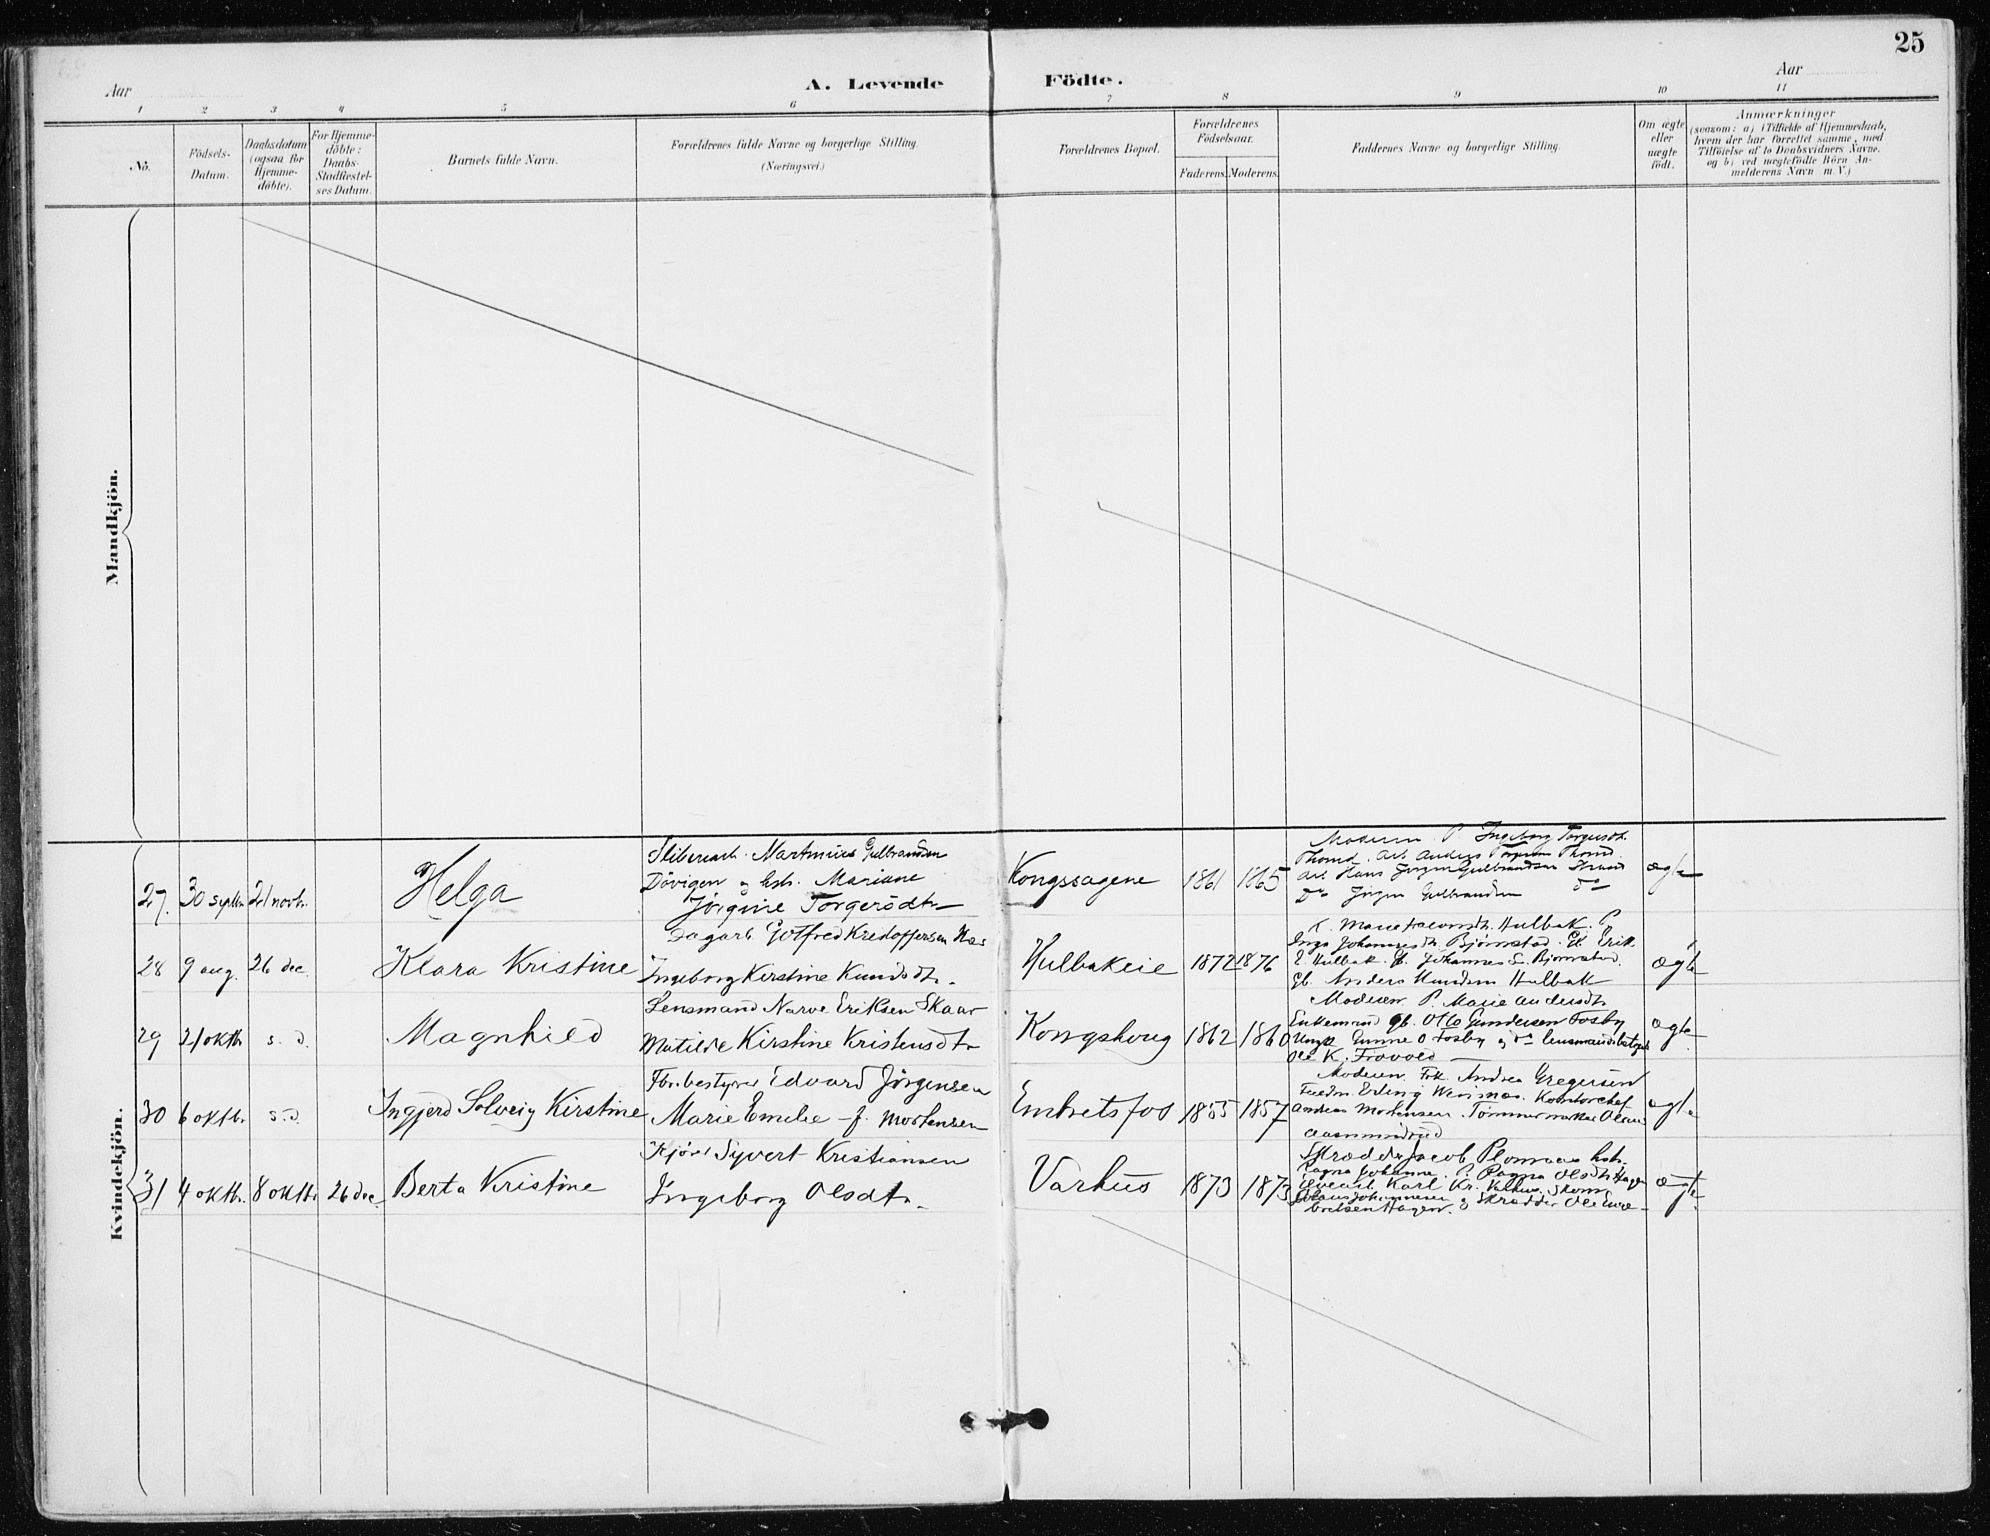 25
Aar
A. Levende
Födte.
Aar
1 2 3 4 5 6 7 8 9 10 11
No.
Födsels-
Datum.
Daabsdatum
(ogsaa for
Hjemme-
döbte).
For Hjemme-
döbte:
Daabs-
Stadfæstel-
ses Datum.
Barnets fulde Navn.
Forældrenes fulde Navne og borgerlige Stilling.
(Næringsvei.)
Forældrenes Bopæl.
Forældrenes
Födselsaar.
Faderens. Moderens.
Faddernes Navne og borgerlige Stilling.
Om ægte
eller
uægte
födt.
Anmærkninger
(saasom: a) i Tilfælde af Hjemmedaab,
hvem der har forrettet samme, med
Tilföielse af to Daabsvidners Navne,
og b) ved uægtefödte Börn An-
melderens Navn m. V.)
Mandkjön.
Kvindekjön.
27. 30 septbr. 21 novbr.
Helga
Martinius Gulbrandsen
Dövigen og hstr. Mariane
Jörgine Torgersdtr
Kongssagene
1861 1865
Moderen. P. Ingeborg Torgersdtr.
Thomd. Arb. Anders Thomd
Arb. Hans Jörgen Gulbrandsen Strand
Do Jörgen Gulbrandsen do
ægte
28 9 aug. 26 dec.
Klara Kristine
Dagarb. Gotfred Kristoffersen
Ingeborg Kirstine Knudsdtr.
Hulbakeie
1872 1876
K. Marie Hulbak. P.
Inga Johannesdtr. Björnstad. Gb. Erik
E. Hulbak. Gb. Johannes S. Björnstad.
Gb. Anders Knudsen Hulbak
ægte
29 21 oktbr. s. d.
Magnhild
Lensmand Narve Eriksen Skaar
Matilde Kirstine Kristensdtr.
Kongshoug
1862 1860
Moderen. P. Marie Andersdtr
Enkemand gb. Otto Gundersen Fosby
Ungk. Gunne O Fosby og do
Ole K.
ægte
30 6 oktbr. s. d.
Ingjerd Solveig Kirstine
Fbr.bestyrer Edvard Jörgensen
Marie Emelie f. Mortensen
Embretsfos
1855 1857
Moderen. Frk. Andrea Gregersen
Erling Kontorchef
Andreas Mortensen. Tömmermærker
ægte
31 4 oktbr. 8 oktbr. 26 dec.
Berta Kristine
Kjörer Syvert Kristiansen
Ingeborg Olsdtr.
Varhus
1873 1873
Skrædder Jacob hstr.
Ragna Johanne. P. Ragna Olsdtr Hagen
Karl Kr. Skom.
Johannesen og Skrædder Ole
Hagen.
ægte